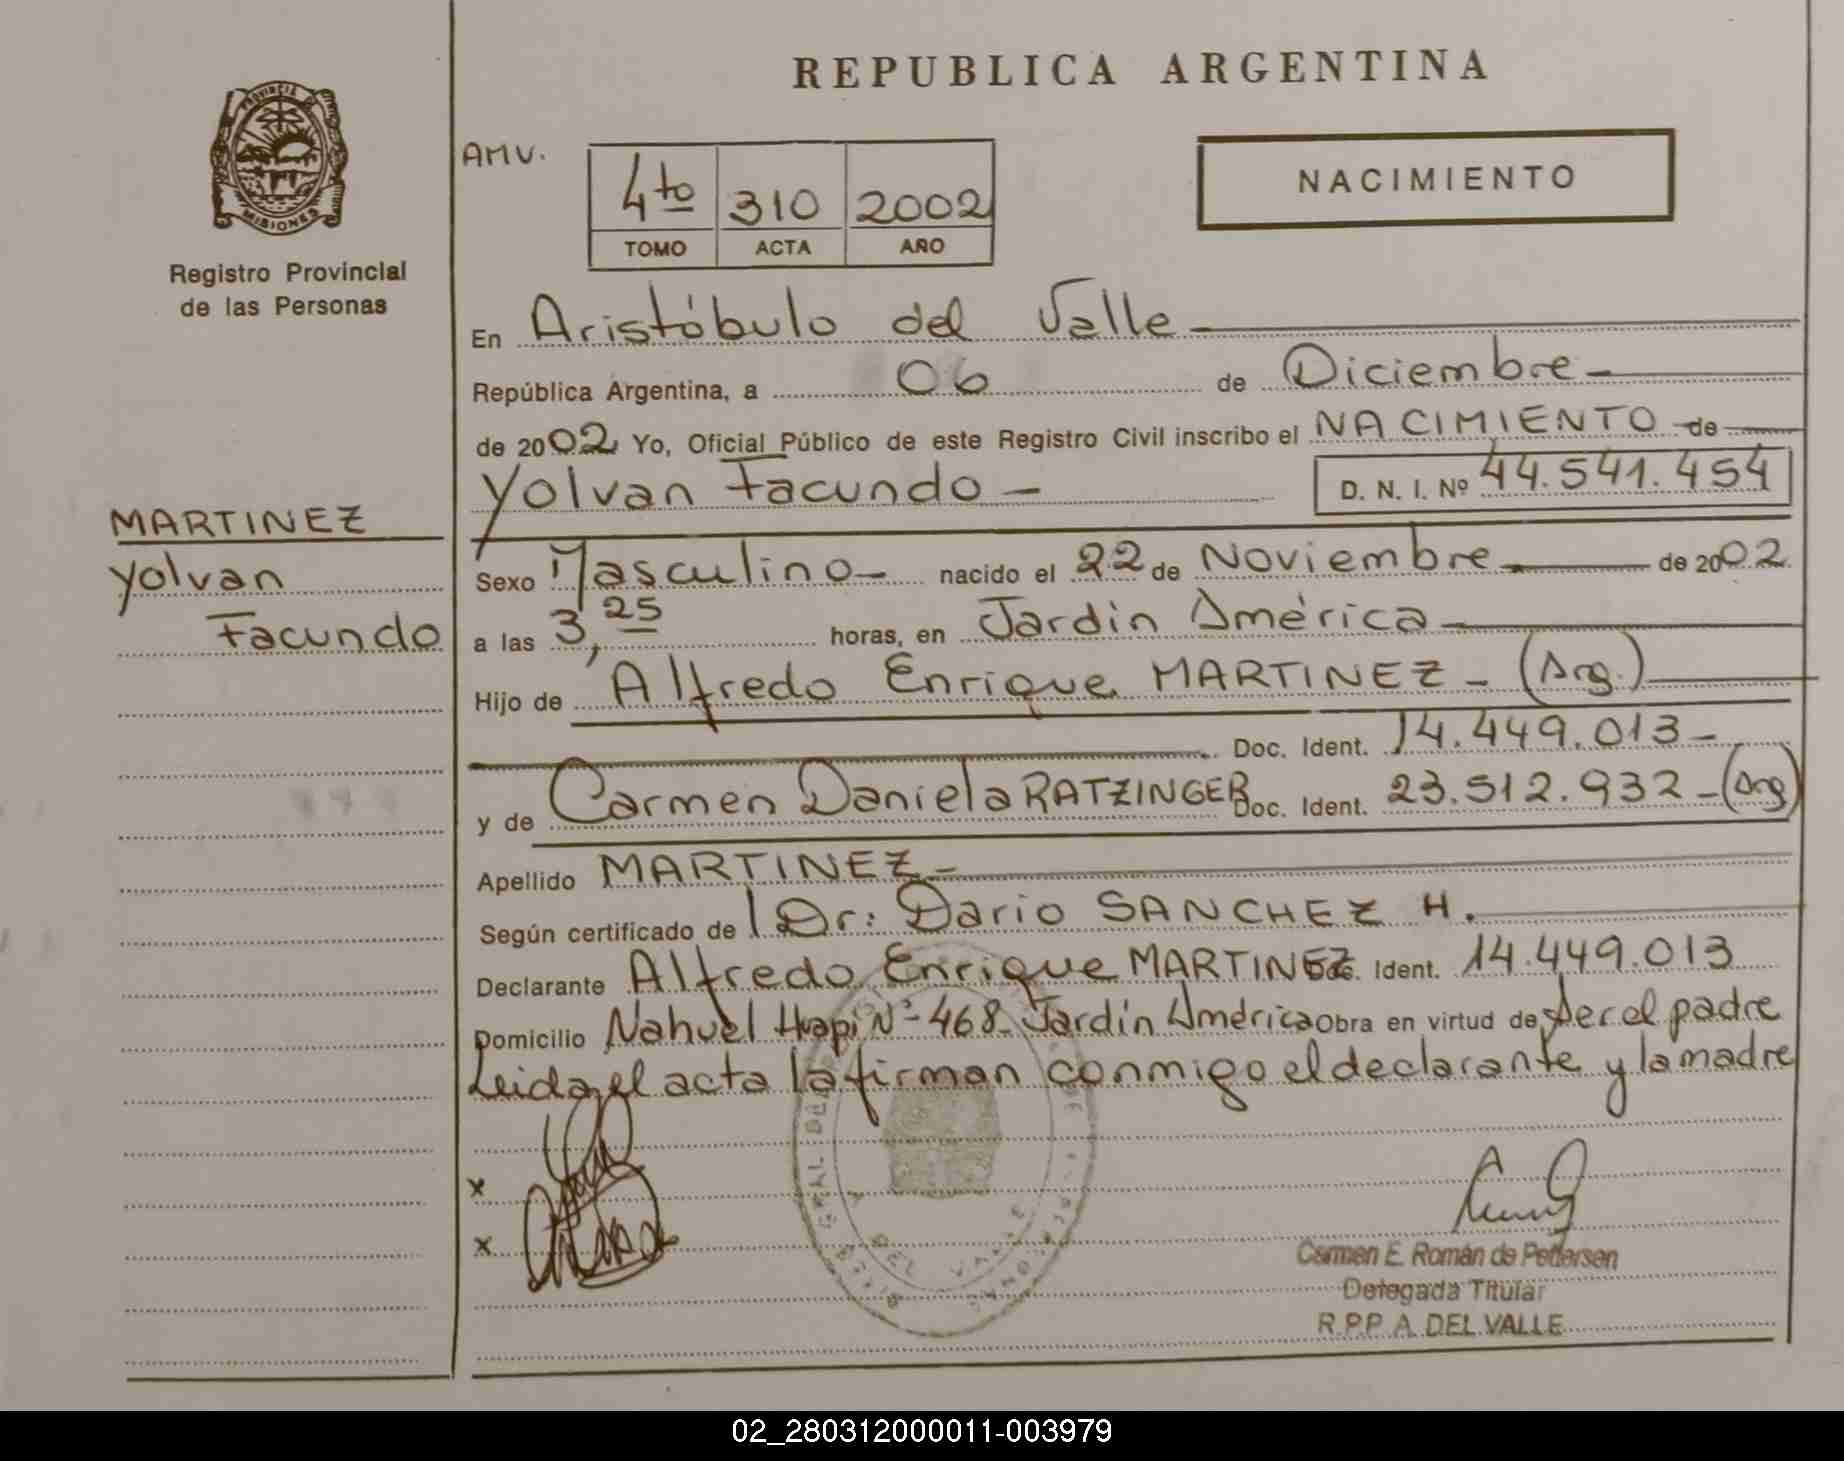 REPUBLICA ARGENTINA
PROVINCIA DE
MISIONES
Registro Provincial
de las Personas
AMV.
4to 310 2002
TOMO ACTA AÑO
NACIMIENTO
En Aristóbulo del Valle
República Argentina, a 06 de Diciembre
de 2002 Yo, Oficial Público de este Registro Civil inscribo el NACIMIENTO de
Yolvan Facundo D. N. I. Nº 44.541.454
MARTINEZ
Yolvan
Facundo
Sexo Masculino nacido el 22 de Noviembre de 2002
a las 3,25 horas, en Jardín América
Hijo de Alfredo Enrique MARTINEZ - (Arg.)
Doc. Ident. 14.449.013
y de Carmen Daniela RATZINGER Doc. Ident. 23.512.932 - (Arg)
Apellido MARTINEZ
Según certificado de Dr: Dario SANCHEZ H.
Declarante Alfredo Enrique MARTINEZ Doc. Ident. 14.449.013
Domicilio Nahuel Huapi Nº 468 Jardín América Obra en virtud de Ser el padre
Leida el acta la firman conmigo el declarante y la madre
x
x
DEL VALLE
Carmen E. Román de Pedersen
Delegada Titular
R.P.P. A. DEL VALLE
02_280312000011-003979